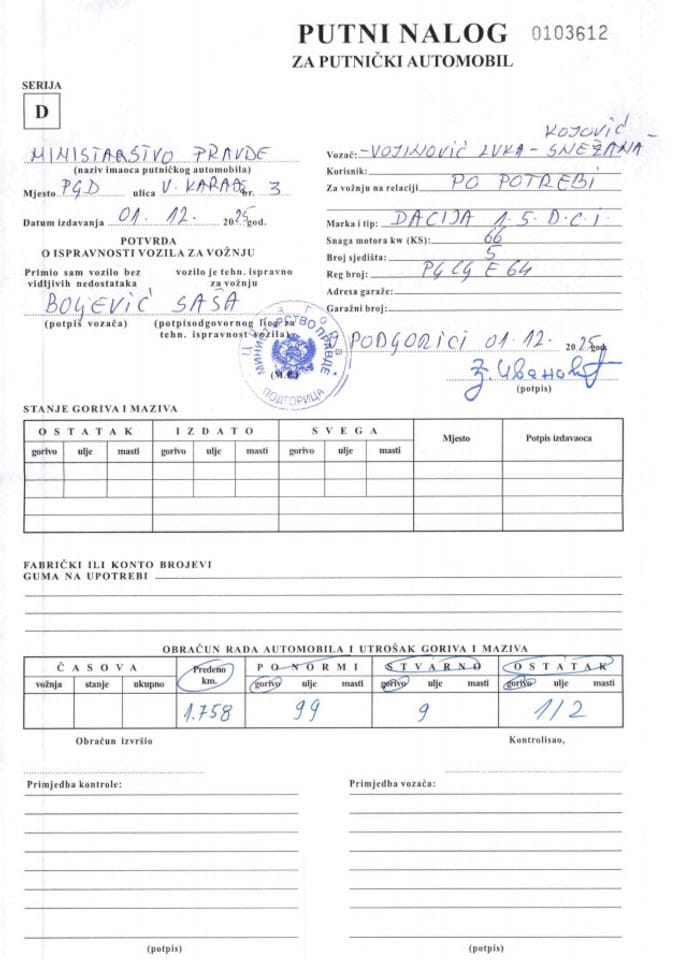 PUTNI NALOG 0103612
ZA PUTNIČKI AUTOMOBIL
SERIJA
D
MINISTARSTVO PRAVDE
(naziv imaoca putničkog automobila)
Mjesto PGD ulica V. KARADŽ br. 3
Datum izdavanja 01. 12. 2025 god.
POTVRDA
O ISPRAVNOSTI VOZILA ZA VOŽNJU
Primio sam vozilo bez vidljivih nedostataka
vozilo je tehn. ispravno za vožnju
BOLJEVIĆ SAŠA
(potpis vozača) (potpis odgovornog lica za tehn. ispravnost vozila)
KOJOVIĆ
Vozač: -VOJINOVIĆ LUKA - SNEŽANA -
Korisnik:
Za vožnju na relaciji PO POTREBI
Marka i tip: DACIJA 1.5. D.C.I.
Snaga motora kw (KS): 66
Broj sjedišta: 5
Reg broj: PG CG E 64
Adresa garaže:
Garažni broj:
PODGORICI 01. 12. 2025 god.
З. Ивановић
(potpis)
Црна Гора
МИНИСТАРСТВО ПРАВДЕ
ПОДГОРИЦА
(M.P.)
STANJE GORIVA I MAZIVA
OSTATAK IZDATO SVEGA Mjesto Potpis izdavaoca
gorivo ulje masti gorivo ulje masti gorivo ulje masti
FABRIČKI ILI KONTO BROJEVI
GUMA NA UPOTREBI
OBRAČUN RADA AUTOMOBILA I UTROŠAK GORIVA I MAZIVA
ČASOVA Pređeno km. PO NORMI STVARNO OSTATAK
vožnja stanje ukupno gorivo ulje masti gorivo ulje masti gorivo ulje masti
1.758 99 9 1/2
Obračun izvršio Kontrolisao,
Primjedba kontrole: Primjedba vozača:
(potpis) (potpis)